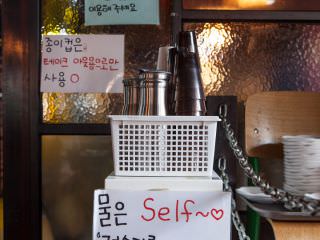 이용해 주세요
종이컵은
테이크 아웃용으로만
사용 O
물은 Self~♡